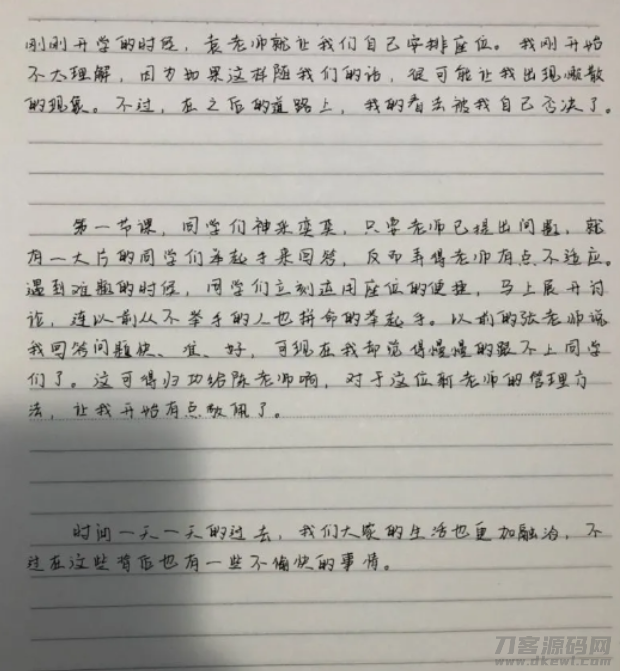 刚刚开学的时候，袁老师就让我们自己安排座位。我刚开始
不太理解，因为如果这样随我们的话，很可能让我出现懒散
的现象。不过，在之后的道路上，我的看法被我自己否决了。
第一节课，同学们神采奕奕，只要老师已提出问题，就
有一大片的同学们举起手来回答，反而弄得老师有点不适应。
遇到难题的时候，同学们立刻运用座位的便捷，马上展开讨
论，连以前从不举手的人也拼命的举起手。以前的张老师说
我回答问题快、准、好，可现在我却觉得慢慢的跟不上同学
们了。这可得归功给陈老师啊，对于这位新老师的管理方
法，让我开始有点敬佩了。
时间一天一天的过去，我们大家的生活也更加融洽，不
过在这些背后也有一些不愉快的事情。
刀客源码网
www.dkewl.com